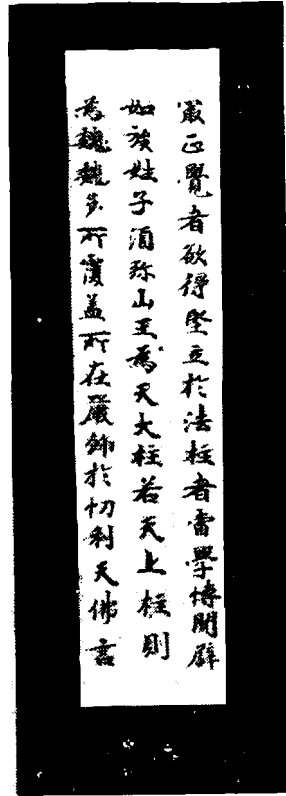 最正覺者欲得堅立於法柱者當學博聞譬
如族姓子須弥山王為天大柱若天上柱則
為巍巍多所覆盖所在嚴飾於忉利天佛言